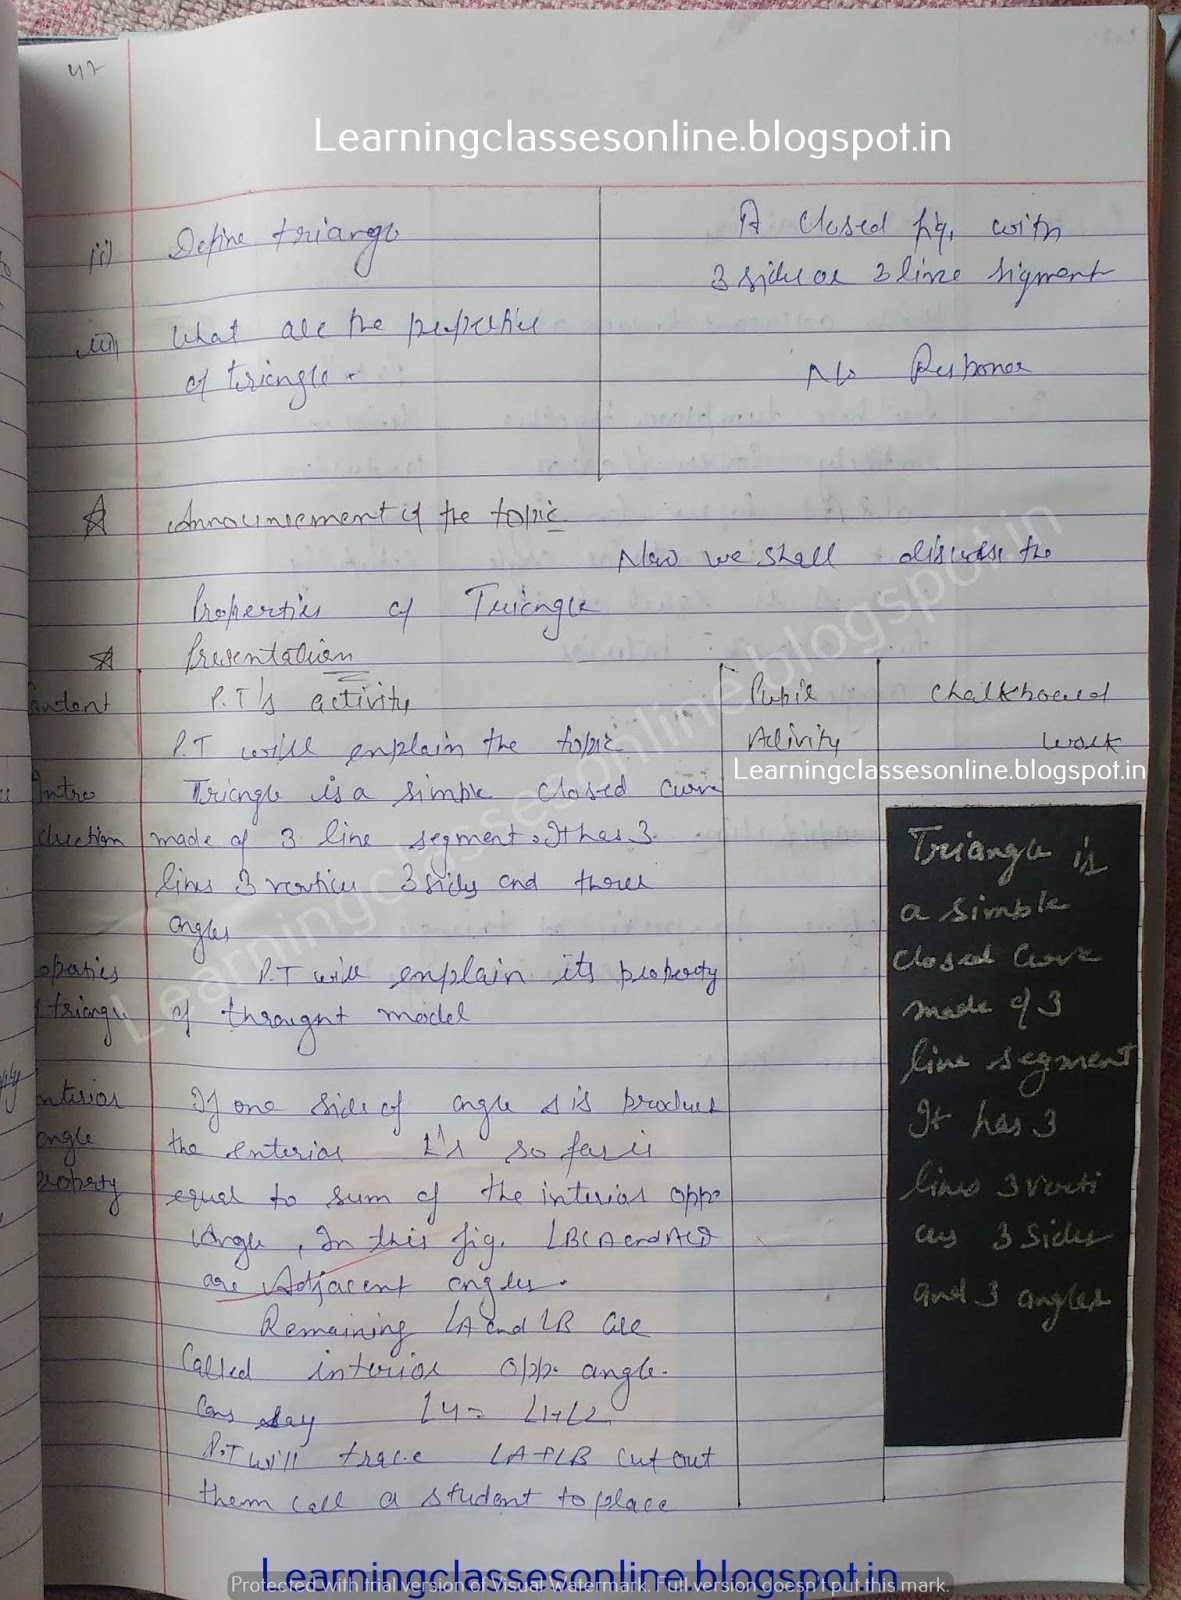 47
Learningclassesonline.blogspot.in
ii) Define triangle A closed fig. with
3 side or 3 line sigment
iii) What are the properties
of triangle. No Response
Announcement of the topic
Now we shall discuss the
Properties of Triangle
Presentation
Content P.T's activity Pupil Chalkboard
P.T will explain the topic Activity work
Learningclassesonline.blogspot.in
Intro Triangle is a simple closed curve
duction made of 3 line segment. It has 3
lines 3 vertices 3 sides and three
angles
operties P.T will explain its property
of triangle of throught model
Triangle is
a simple
closed curve
made of 3
line segment
It has 3
lines 3 verti
ces 3 sides
and 3 angles
nterior If one side of angle Δ is product
angle the enterior ∠'s so far is
roperty equal to sum of the interior opp.
Angle, In this fig. ∠BCA and ACD
are Adjacent angles.
Remaining ∠A and ∠B are
Called interior opp. angle.
say ∠4 = ∠1+∠2
P.T will trace ∠A+∠B cut out
them call a student to place
Learningclassesonline.blogspot.in
Learningclassesonline.blogspot.in
Protected with trial version of Visual Watermark. Full version doesn't put this mark.